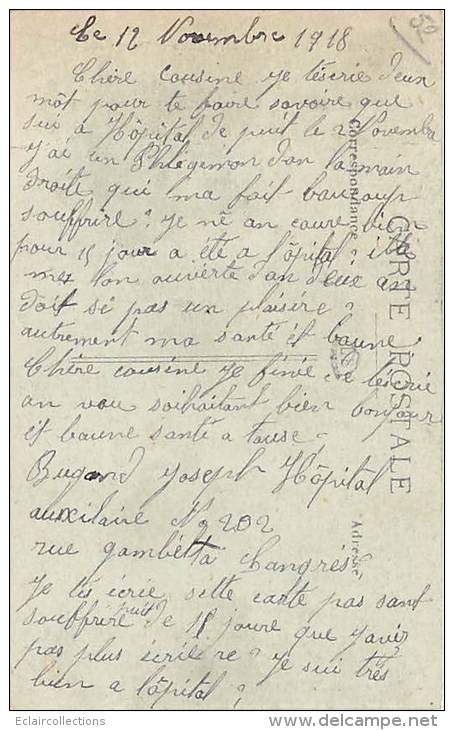 Le 12 Novembre 1918
52
Chère cousine je técrie deun
môt pour te faire savoire que
sui a Hôpital de puit le 2 Novembre
j'ai un Phlégemon dan la main
droite qui ma fait baucoup
souffrire? je nê an caure
pour 15 jour a étê a l'ôpital?
mez lon ouverte dan deux an
doit sé pas un plaisire?
autrement ma santé êt baune
Chère cousine je finie de técrie
an vou souhaitant bien bonjour
êt baune santé a touse
Bugand Joseph Hôpital
auxilaire No 202
rue gambetta Langrés
je tês écrie sette carte pas sant
souffrire puit de 15 joure que j'avir
pas plus écrire? je sui três
bien a l'ôpital?
Correspondance
CARTE POSTALE
Adresse
Eclaircollections